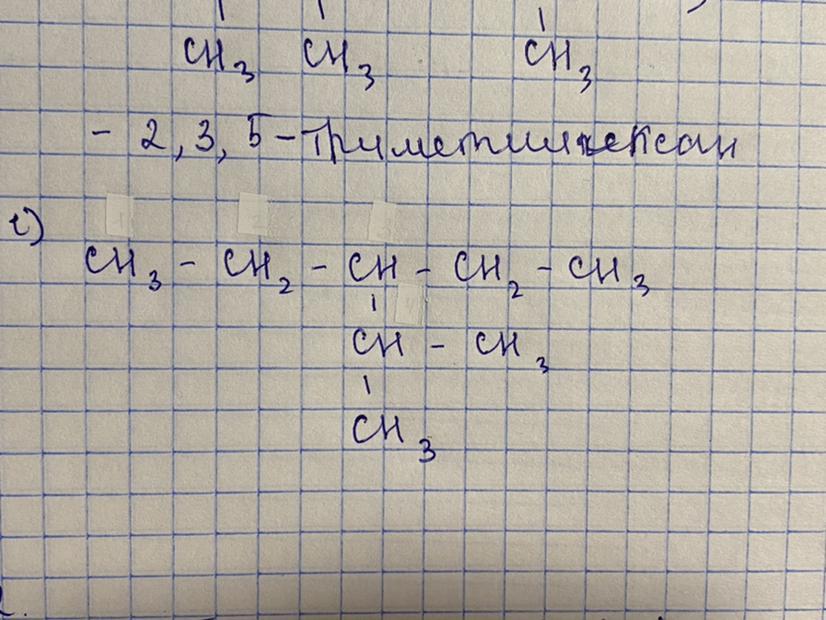 CH3 CH3 CH3
- 2, 3, 5 - триметилгексан
г)
CH3 - CH2 - CH - CH2 - CH3
CH - CH3
CH3
2.